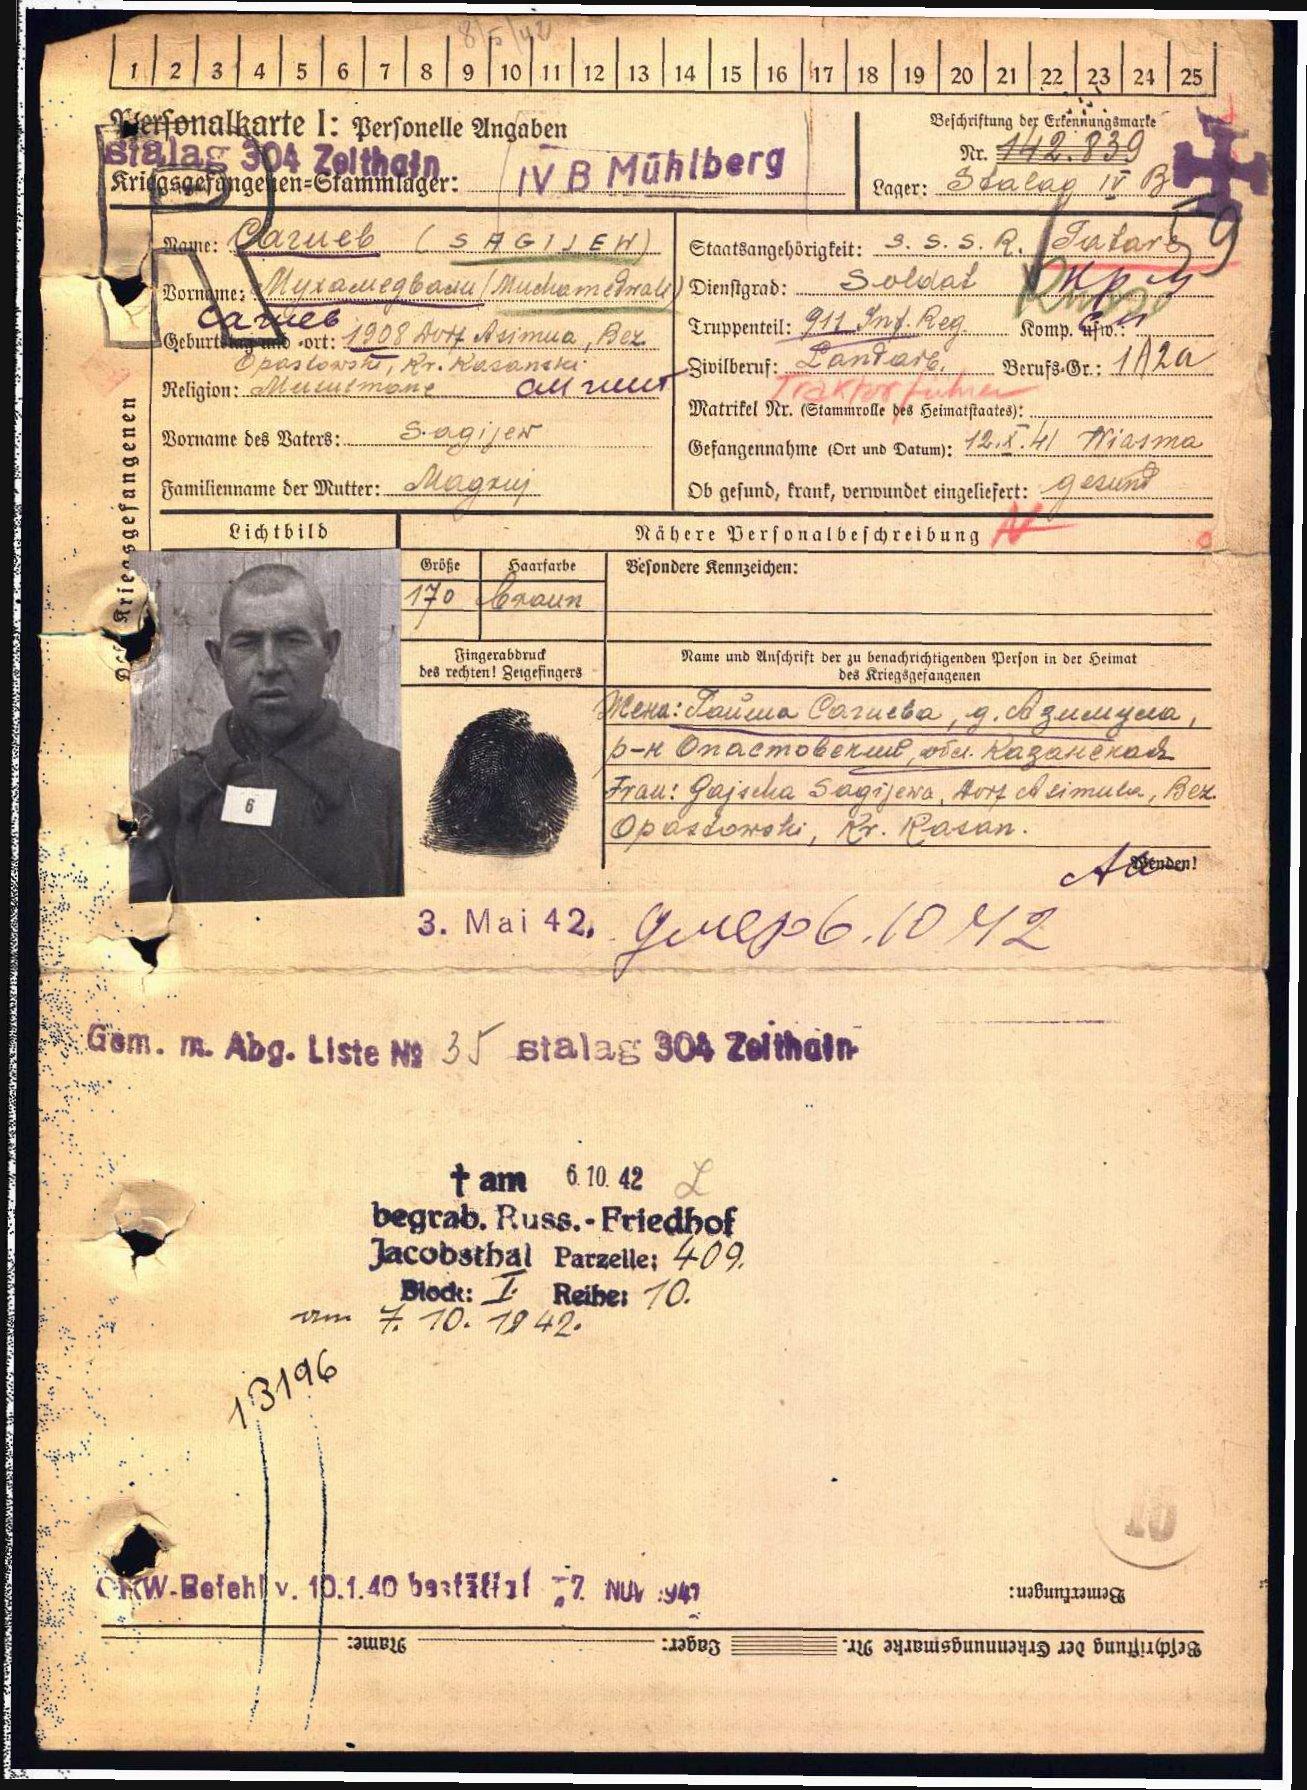 8/5/42
1 2 3 4 5 6 7 8 9 10 11 12 13 14 15 16 17 18 19 20 21 22 23 24 25
Personalkarte I: Personelle Angaben
Stalag 304 Zeithain
Kriegsgefangenen-Stammlager: IV B Mühlberg
Beschriftung der Erkennungsmarke
Nr. 142.839
Lager: Stalag IV B
Des Kriegsgefangenen
Name: Сагиев (SAGIJEW)
Vorname: Мухамедвали (Muchamedwali)
Сагиев
Geburtstag und -ort: 1908 Dorf Asimua, Bez.
Opastowski, Kr. Kasanski
Religion: Muselmane
Vorname des Vaters: Sagijew
Familienname der Mutter: Magruj
Staatsangehörigkeit: S.S.S.R. Tatare
59
Dienstgrad: Soldat
Truppenteil: 911 Inf. Reg. Komp. usw.:
Zivilberuf: Landarb. Berufs-Gr.: 1A2a
Traktorführer
Matrikel Nr. (Stammrolle des Heimatstaates):
Gefangennahme (Ort und Datum): 12.X.41 Wiasma
Ob gesund, krank, verwundet eingeliefert: gesund
Lichtbild
Nähere Personalbeschreibung
Größe Haarfarbe Besondere Kennzeichen:
170 braun
Fingerabdruck
des rechten! Zeigefingers
Name und Anschrift der zu benachrichtigenden Person in der Heimat
des Kriegsgefangenen
Жена: Гайша Сагиева, д. Азимула,
р-н Опастовский, обл. Казанская
Frau: Gajscha Sagijewa, Dorf Asimula, Bez.
Opastowski, Kr. Kasan.
6
Wenden!
3. Mai 42. умер 6.10 42
Gem. m. Abg. Liste № 35 Stalag 304 Zeithain
† am 6.10.42
begrab. Russ.-Friedhof
Jacobsthal Parzelle: 409.
Block: I. Reihe: 10.
am 7. 10. 1942.
13196
10
OKW-Befehl v. 10.1.40 bestätigt
Bemerkungen:
Beschriftung der Erkennungsmarke Nr. Lager: Name: